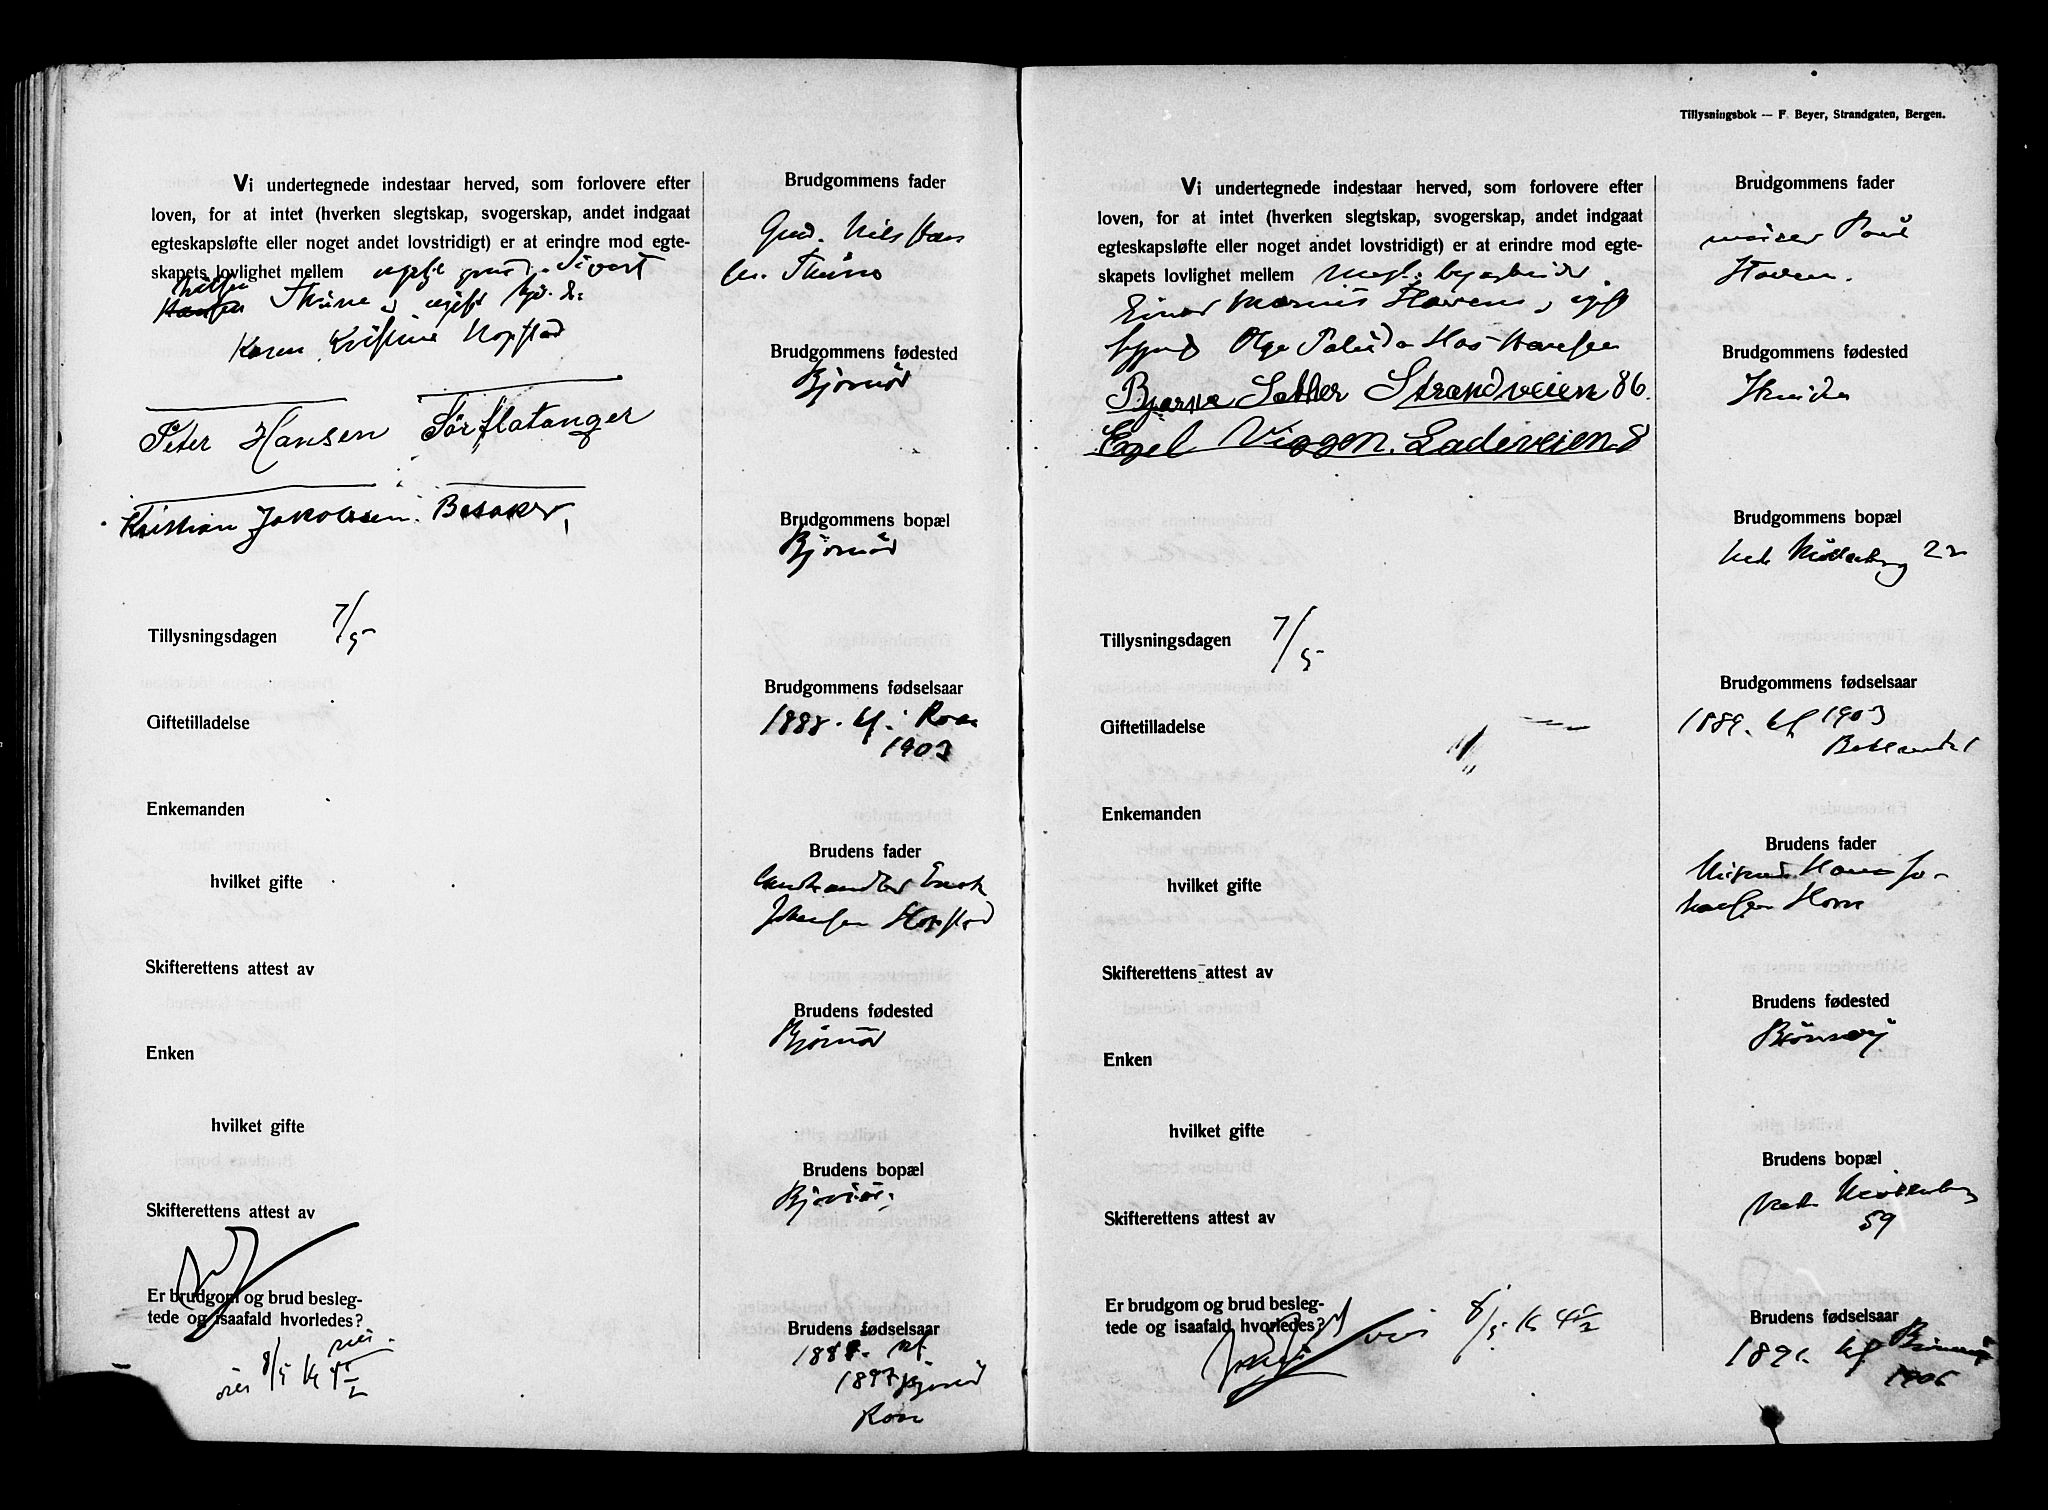 Vi undertegnede indestaar herved, som forlovere efter
loven, for at intet (hverken slegtskap, svogerskap, andet indgaat
egteskapsløfte eller noget andet lovstridigt) er at erindre mod egte-
skapets lovlighet mellem Sivert
Hansen Thine
Karen Kristine Hopstad
Peter Hansen Sörflatanger
Kristian Jakobsen. Besaker,
Tillysningsdagen 7/5
Giftetilladelse
Enkemanden
hvilket gifte
Skifterettens attest av
Enken
hvilket gifte
Skifterettens attest av
Er brudgom og brud besleg-
tede og isaafald hvorledes?
8/5 kl
Brudgommens fader
Nils
Brudgommens fødested
Bjørnør
Brudgommens bopæl
Bjørnør
Brudgommens fødselsaar
1888. kf. Roan
1903
Brudens fader
Johansen Hopstad
Brudens fødested
Bjørnør
Brudens bopæl
Bjørnør
Brudens fødselsaar
kf.
1897 Bjørnør
Roan
Tillysningsbok — F. Beyer, Strandgaten, Bergen.
Vi undertegnede indestaar herved, som forlovere efter
loven, for at intet (hverken slegtskap, svogerskap, andet indgaat
egteskapsløfte eller noget andet lovstridigt) er at erindre mod egte-
skapets lovlighet mellem
Einar
Olga
Bjarne Sæther Strandveien 86.
Egel Viggen. Ladeveien 8
Tillysningsdagen 7/5
Giftetilladelse
Enkemanden
hvilket gifte
Skifterettens attest av
Enken
hvilket gifte
Skifterettens attest av
Er brudgom og brud besleg-
tede og isaafald hvorledes?
nei 8/5 kl
Brudgommens fader
Paul
Brudgommens fødested
Brudgommens bopæl
Nedre Møllenberg 22
Brudgommens fødselsaar
1889. kf 1903
Bakklandet
Brudens fader
Hans Jo-
hansen Horn
Brudens fødested
Brønnøy
Brudens bopæl
Nedre Møllenberg
59
Brudens fødselsaar
1891. kf Brønnøy
1906